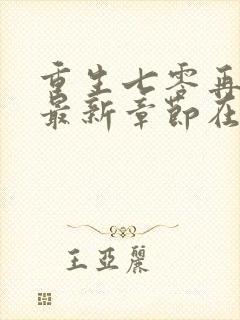 重生七零再
最新章节在
王亚丽